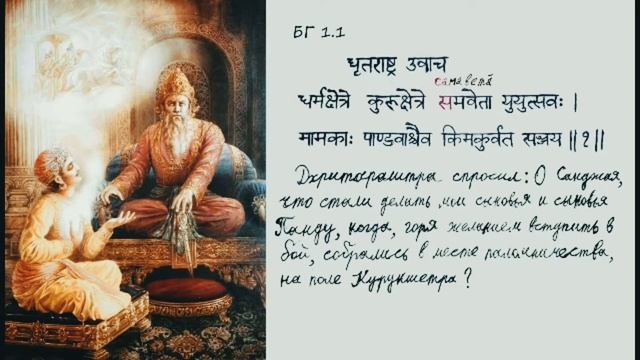 БГ 1.1
धृतराष्ट्र उवाच
самаветā
धर्मक्षेत्रे कुरुक्षेत्रे समवेता युयुत्सवः |
मामकाः पाण्डवाश्चैव किमकुर्वत सञ्जय ||१||
Дхритараштра спросил: О Санджая,
что стали делать мои сыновья и сыновья
Панду, когда, горя желанием вступить в
бой, собрались в месте паломничества,
на поле Курукшетра?